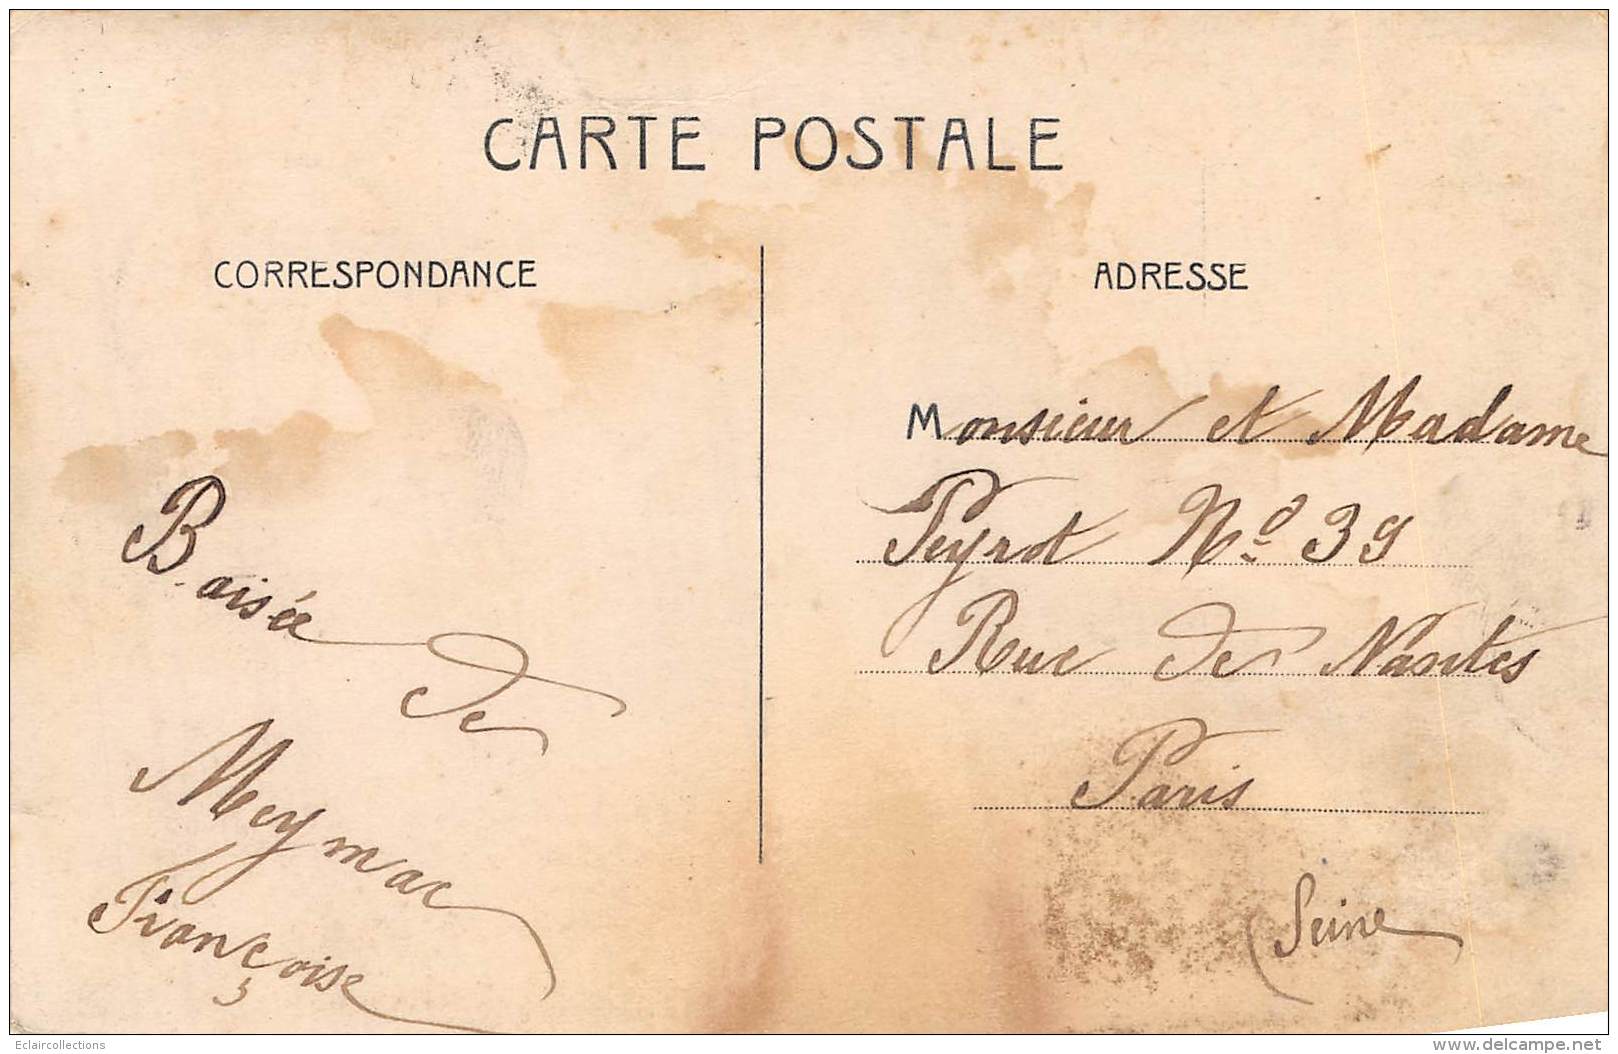 CARTE POSTALE
CORRESPONDANCE
Baisée
de
Meymac
Françoise
ADRESSE
Monsieur et Madame
Peyrot Nº 39
Rue de Nantes
Paris
(Seine
Eclaircollections
www.delcampe.net